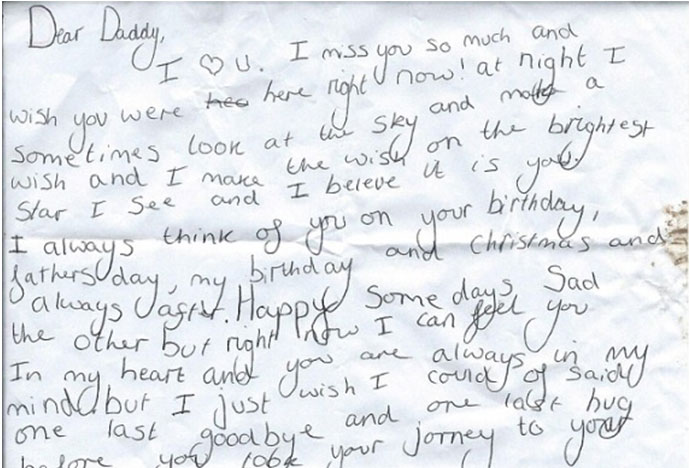 Dear Daddy,
I ♡ U. I miss you so much and
wish you were hee here right now! at night I
sometimes look at the sky and make a
wish and I make the wish on the brightest
star I see and I beleve it is you.
I always think of you on your birthday,
fathers day, my birthday and Christmas and
always after. Happy some days Sad
the other but right now I can feel you
In my heart and you are always in my
mind. but I just wish I could of said
one last goodbye and one last hug
before you took your jorney to your